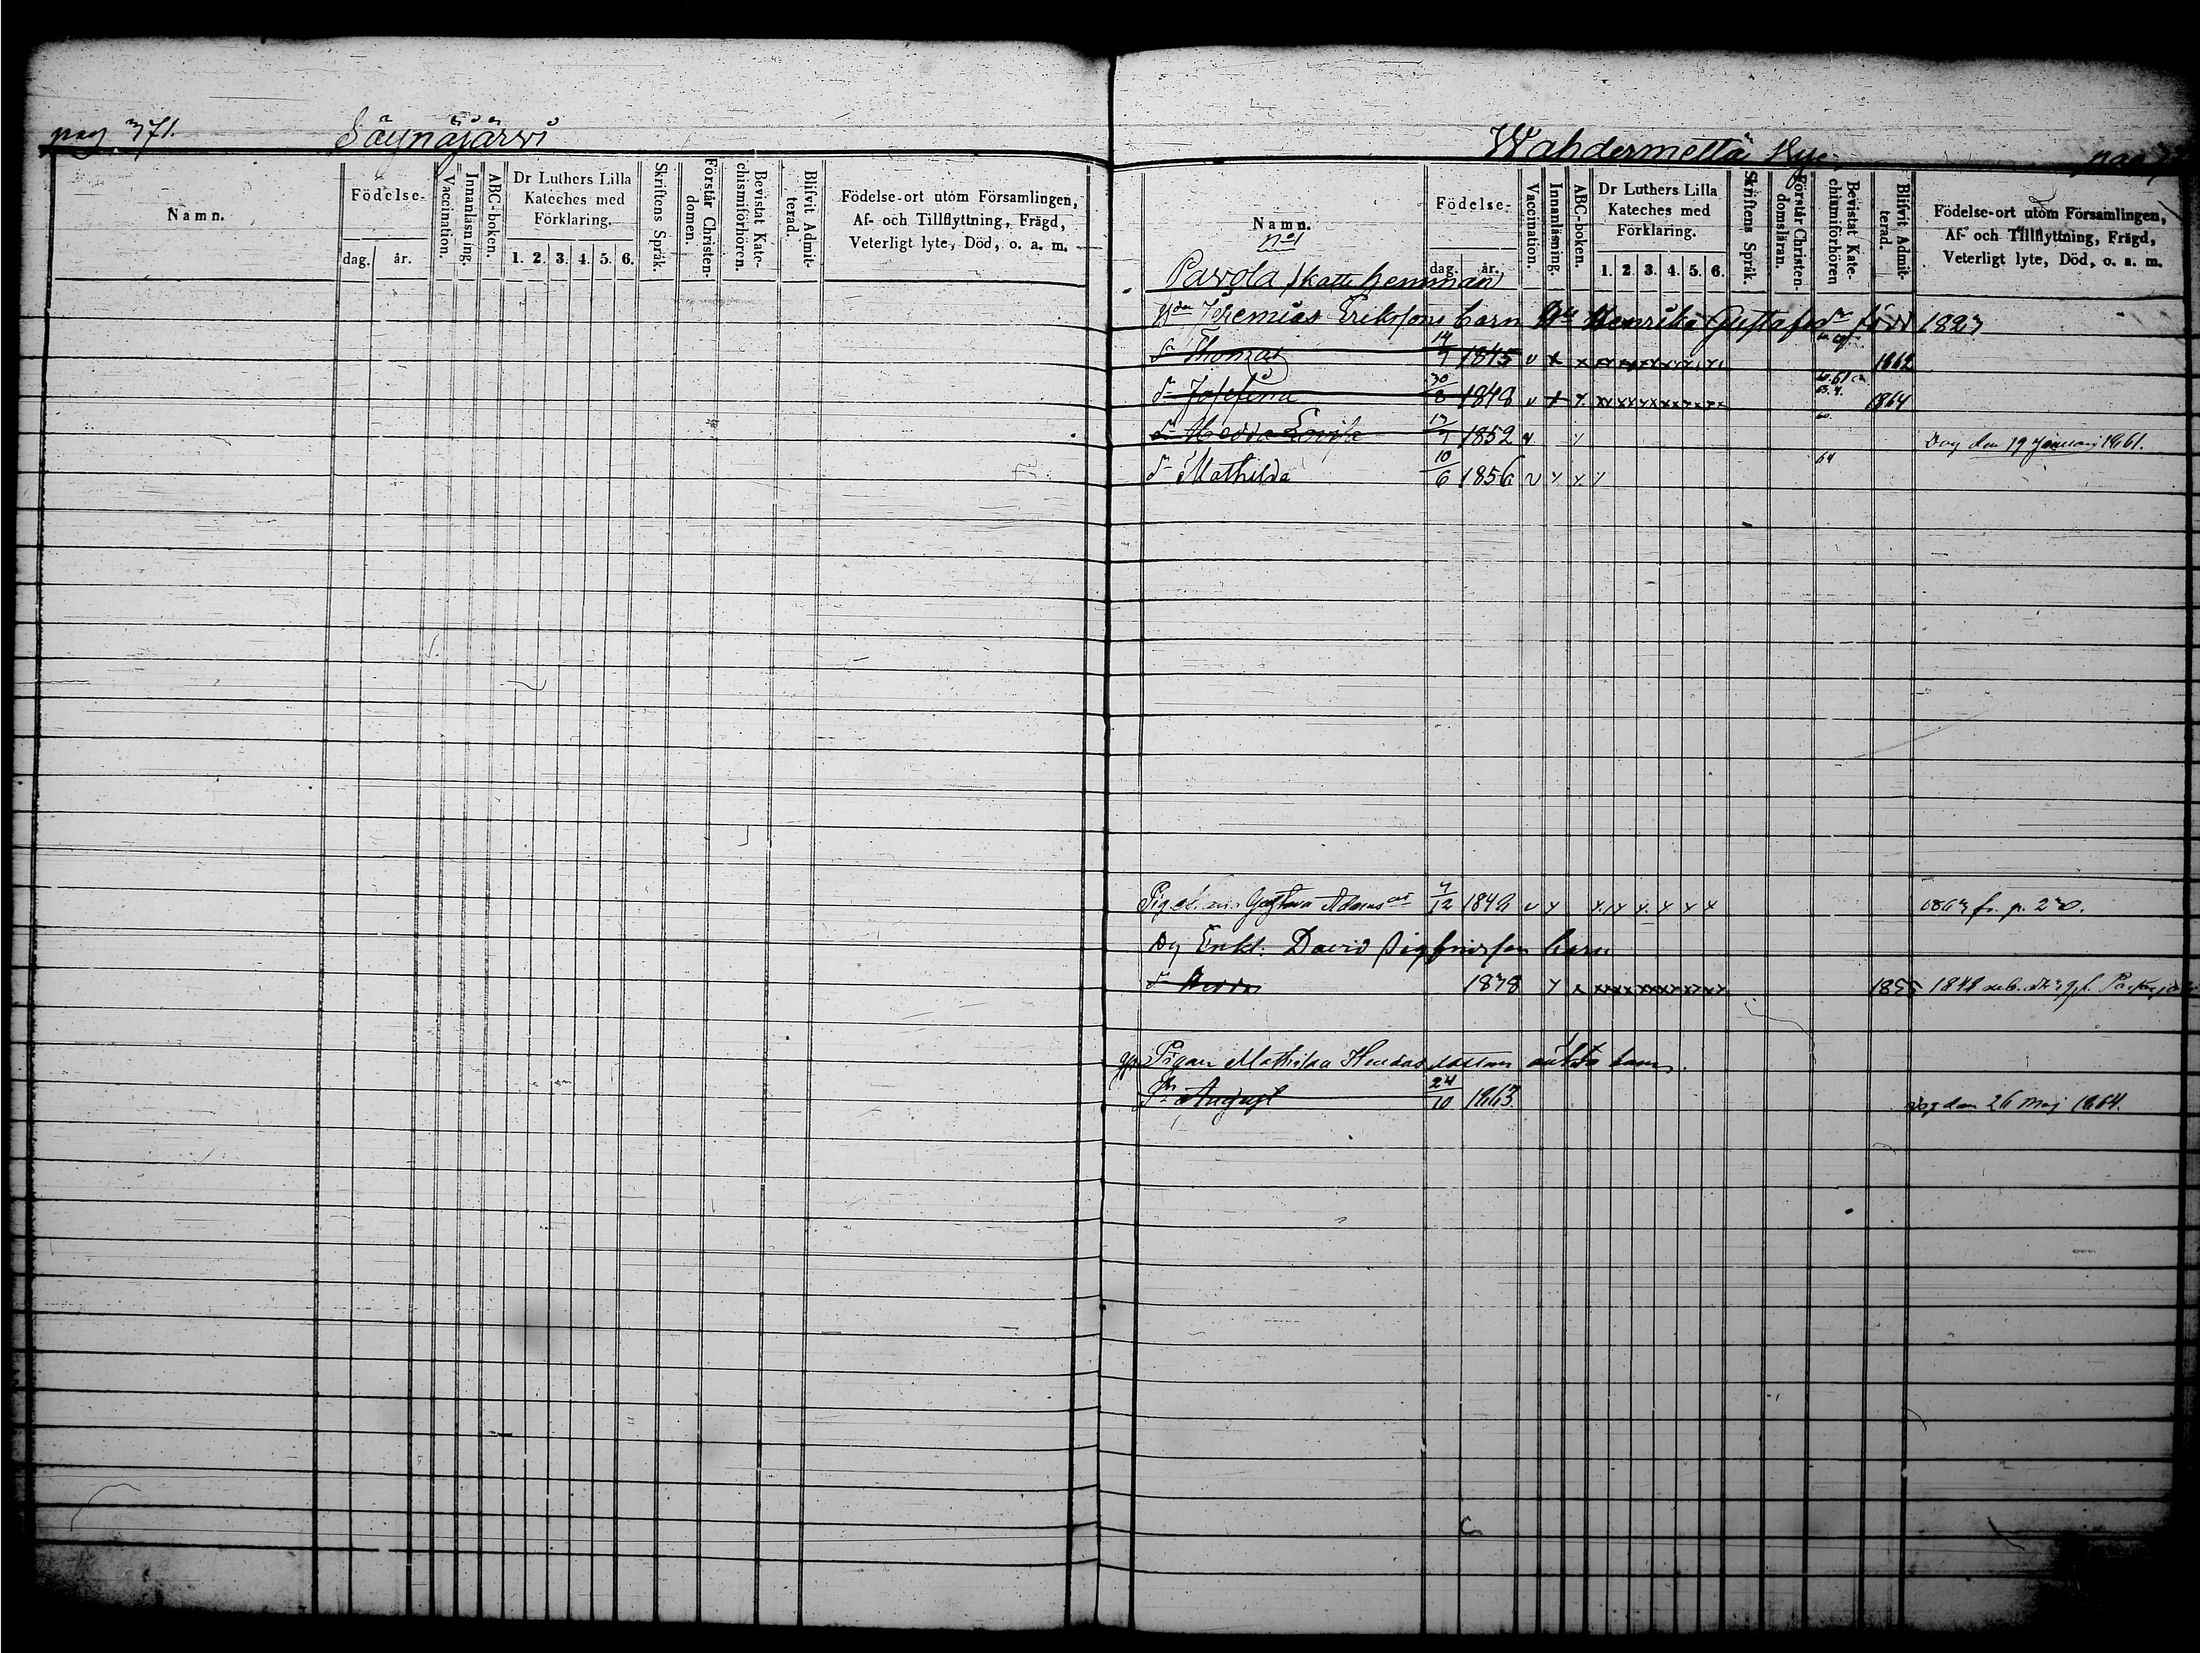 pag 371. Säynäjärwi
Namn.
Födelse-
dag. år.
Vaccination.
Innanläsning.
ABC-boken.
Dr Luthers Lilla Kateches med Förklaring.
1. 2. 3. 4. 5. 6.
Skriftens Språk.
Förstår Christendomen.
Bevistat Katechismiförhören.
Blifvit Admitterad.
Födelse-ort utom Församlingen,
Af- och Tillflyttning, Frägd,
Veterligt lyte, Död, o. a. m.
Wahdermettä pag
Namn.
Födelse-
dag. år.
Vaccination.
Innanläsning.
ABC-boken.
Dr Luthers Lilla Kateches med Förklaring.
1. 2. 3. 4. 5. 6.
Skriftens Språk.
Förstår Christendomsläran.
Bevistat Katechismiförhören
Blifvit Admitterad.
Födelse-ort utom Församlingen,
Af- och Tillflyttning, Frägd,
Veterligt lyte, Död, o. a. m.
No 1
Parola skatte hemman
Jeremias Eriksons barn Henrika Gustafsdr född 1823
Thomas 1845 v x x 1862
Josefina 30/8 1848 v x x 1864
Hedda Lovisa 1852 v x Dog den 19 Januari 1861.
Mathilda 10/6 1856 v x x x 64
Gustava Adamsdr /12 1849 v x x x x x x x fr. p. 230.
Enkl. David Sigfridsson barn
Hedda 1838 x x 1855 1848
Pigan Mathilda oäkta barn
August 24/10 1863. Dog den 26 Maj 1864.